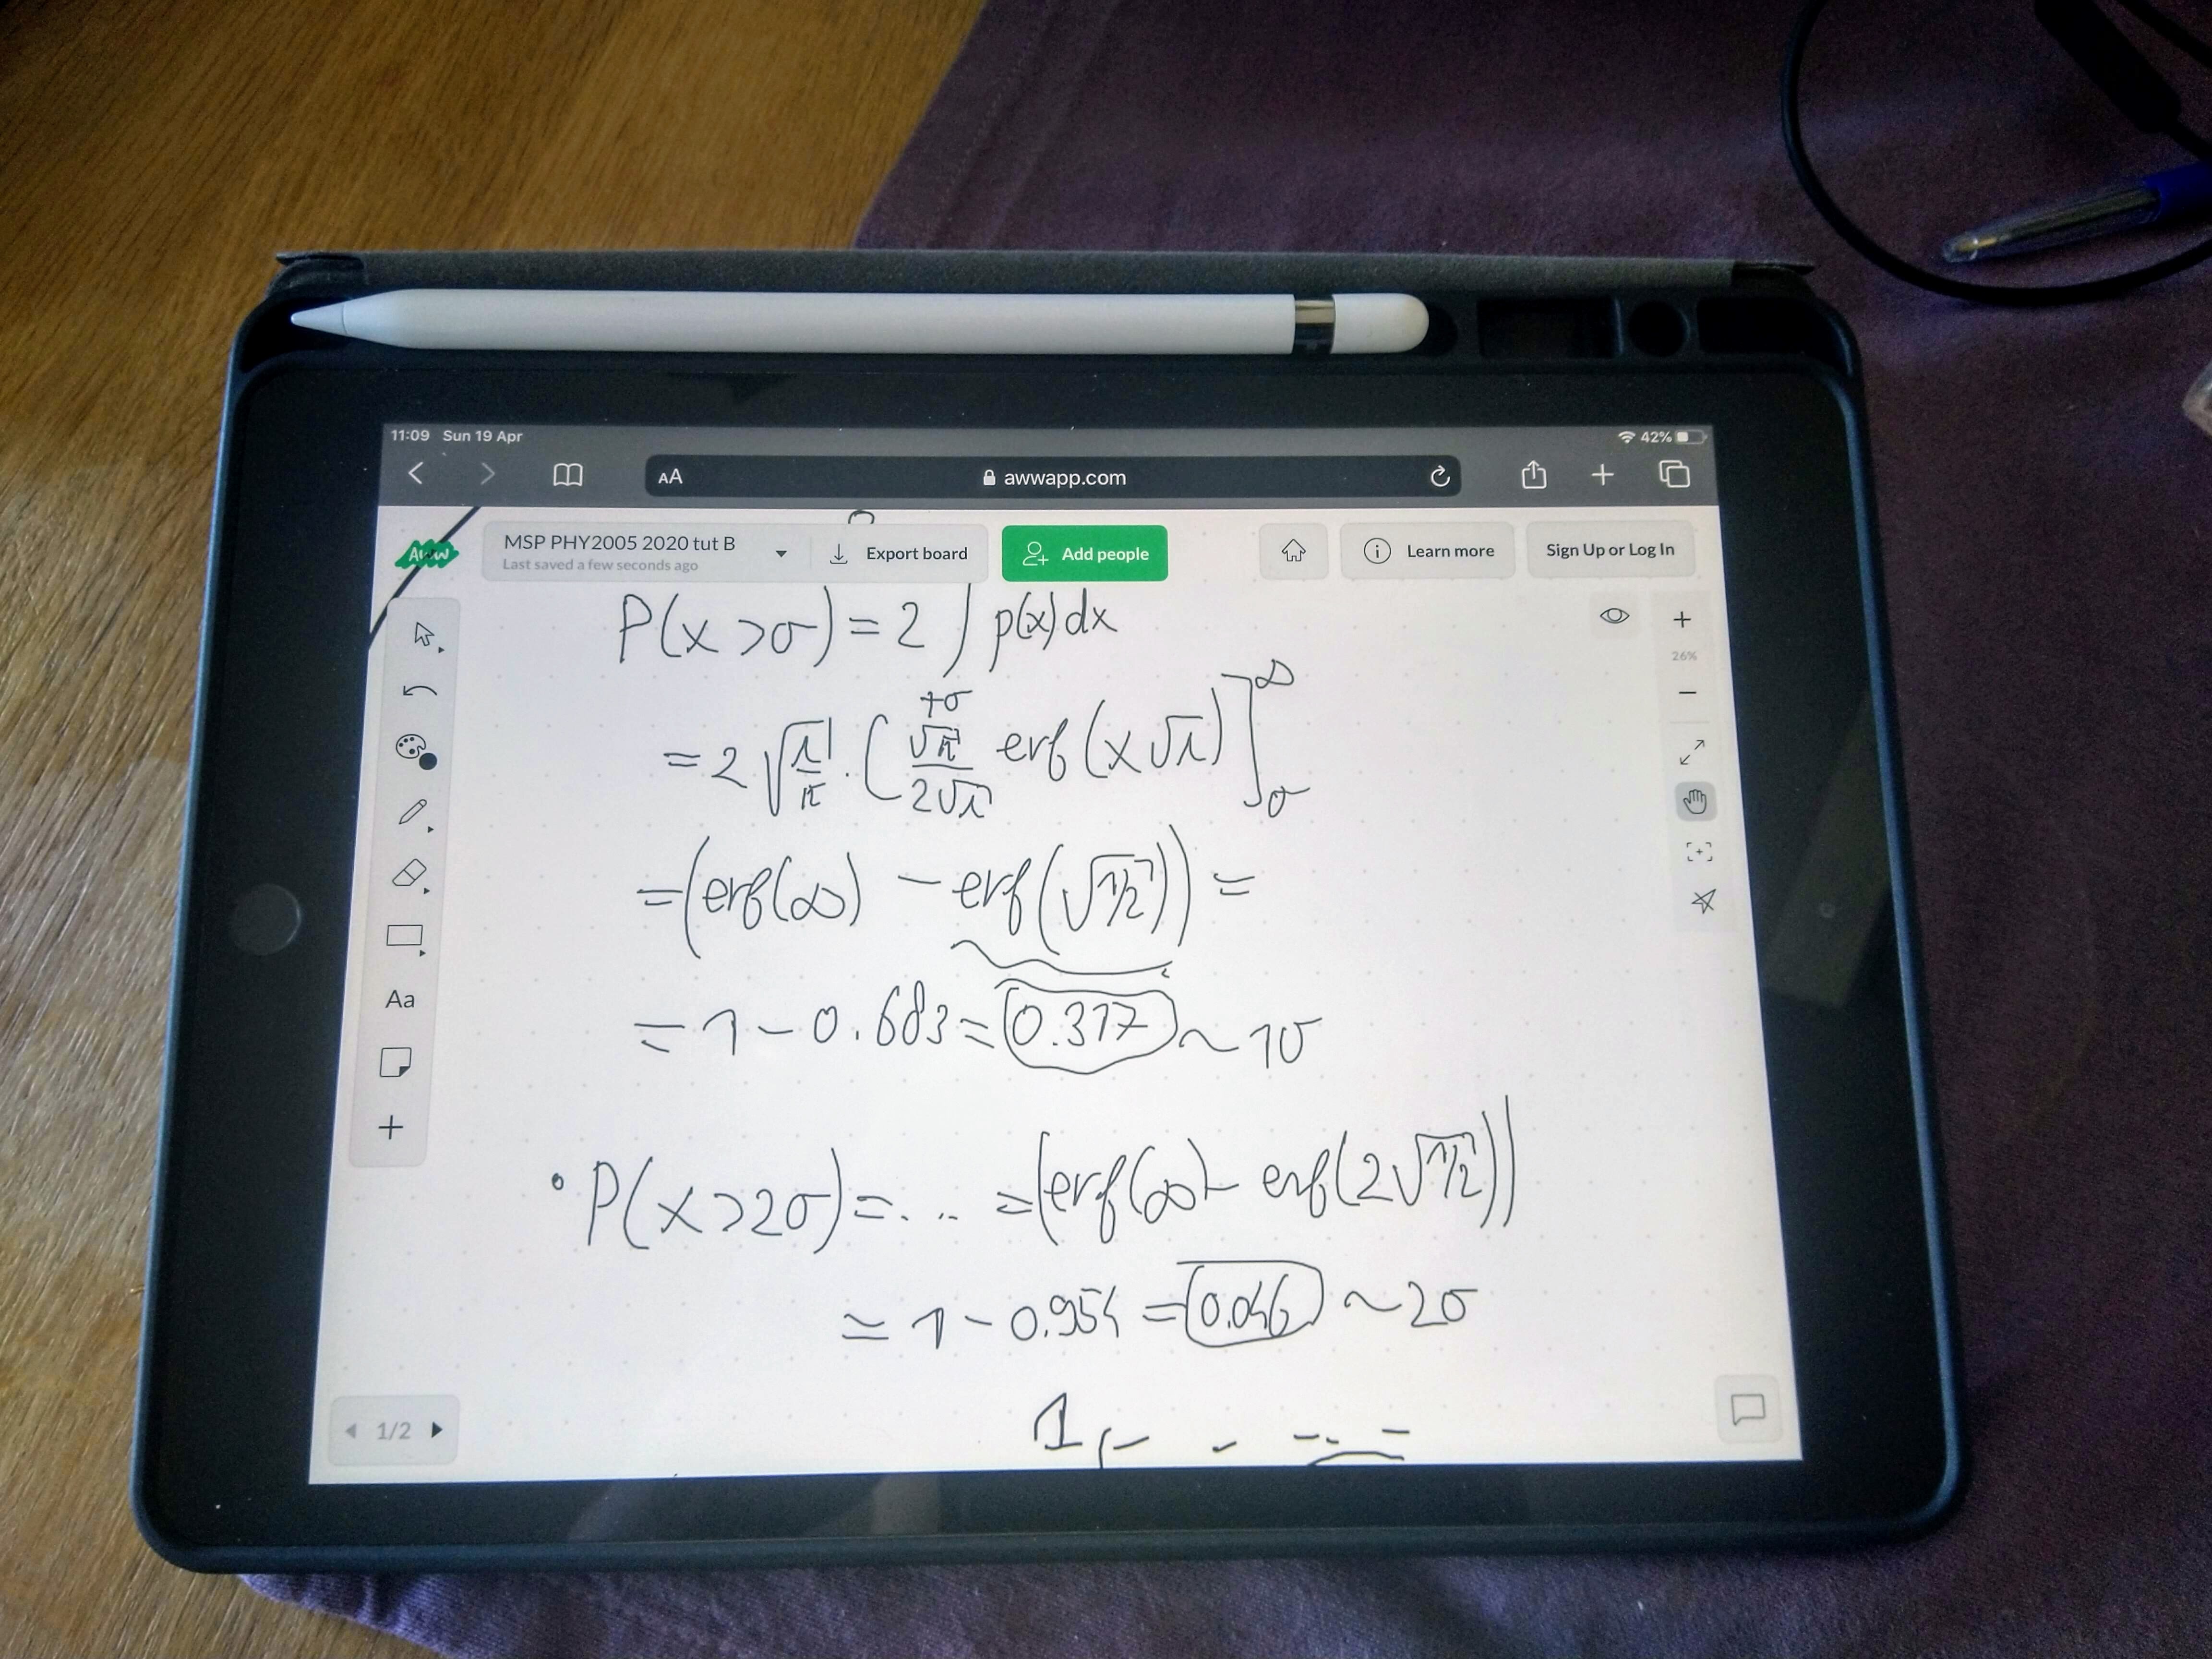 11:09 Sun 19 Apr
42%
AA awwapp.com
Aww
MSP PHY2005 2020 tut B
Last saved a few seconds ago
Export board
Add people
Learn more
Sign Up or Log In
P(x>σ) = 2 ∫ p(x) dx
+σ
= 2 √(λ/π) · [ √π/(2√λ) erf(x√λ) ]_σ^∞
= (erf(∞) - erf(√1/2)) =
= 1 - 0.683 = 0.317 ~ 1σ
• P(x>2σ) = ... = (erf(∞) - erf(2√1/2))
≃ 1 - 0.954 = 0.046 ~ 2σ
26%
Aa
1/2